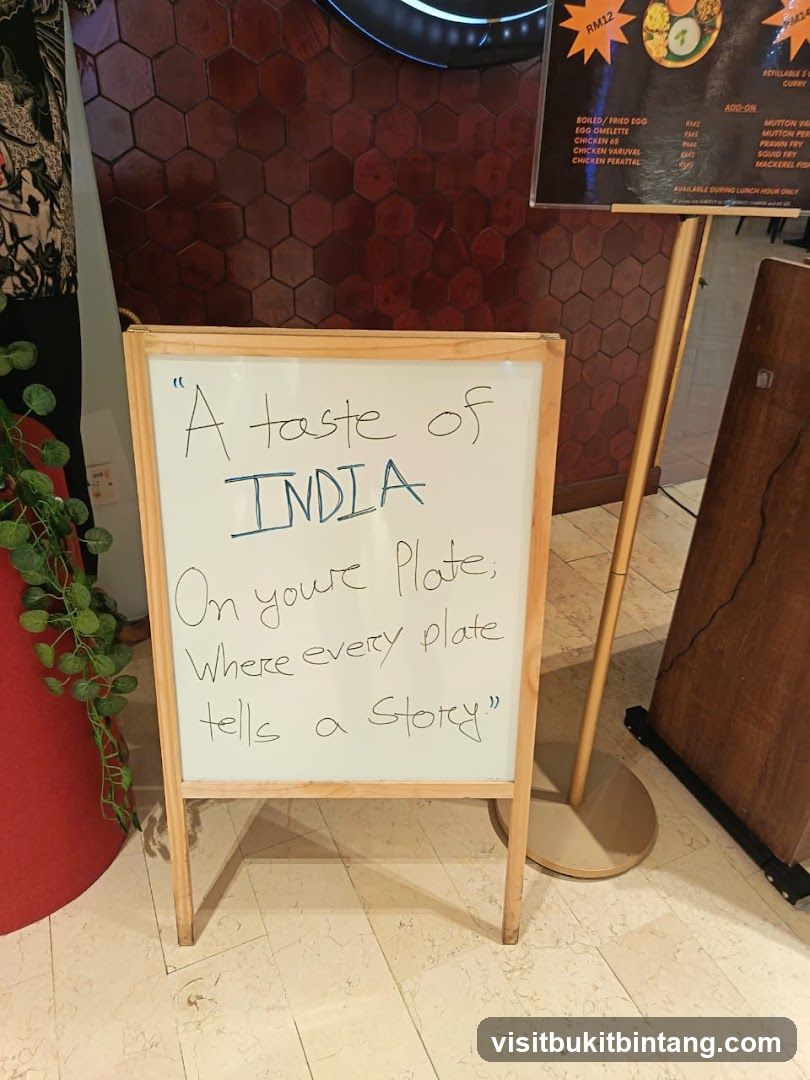 RM12
REFILLABLE
CURRY
ADD-ON
BOILED/ FRIED EGG RM2
EGG OMELETTE RM5
CHICKEN 65
CHICKEN VARUVAL RM5
CHICKEN PERATTAL
MUTTON
MUTTON
PRAWN FRY
SQUID FRY
MACKEREL
AVAILABLE DURING LUNCH HOUR ONLY
"A taste of
INDIA
On youre Plate,
Where every plate
tells a Story."
visitbukitbintang.com